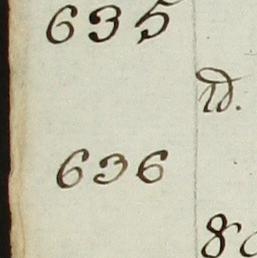 635
id.
636